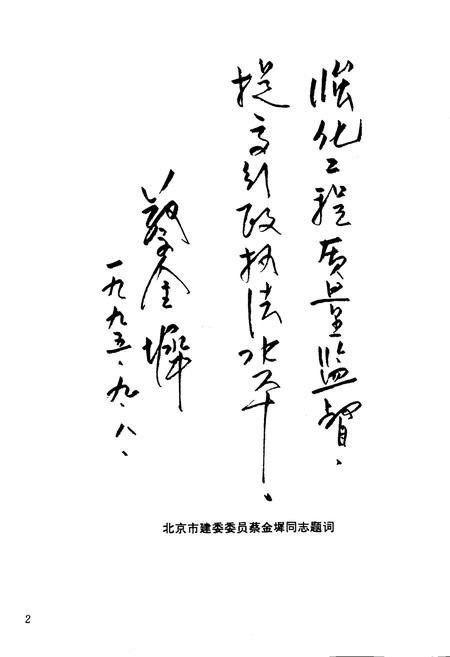 强化工程质量监督、
提高行政执法水平。
蔡金墀
一九九五、九、八、
北京市建委委员蔡金墀同志题词
2